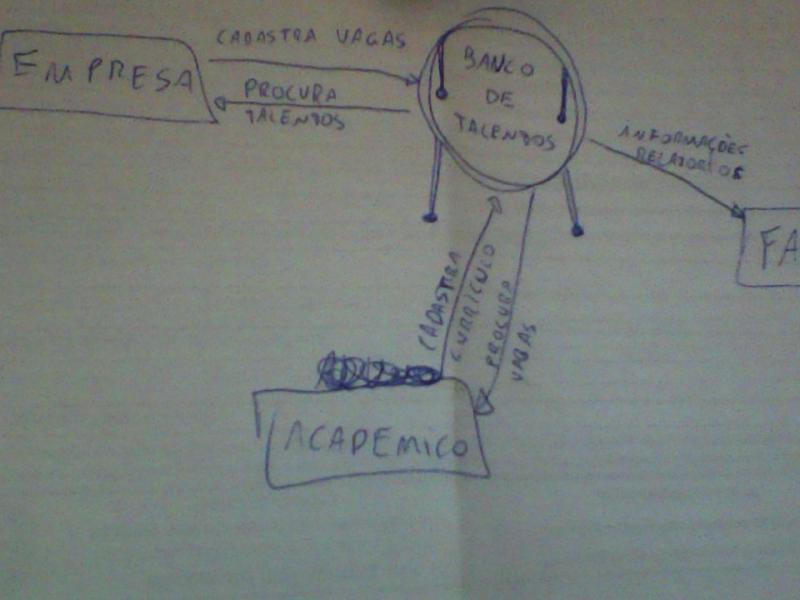 CADASTRA VAGAS
EMPRESA
PROCURA
TALENTOS
BANCO
DE
TALENTOS
INFORMAÇÕES
RELATORIOS
FA
CADASTRA
CURRÍCULO
PROCURA
VAGAS
ACADEMICO